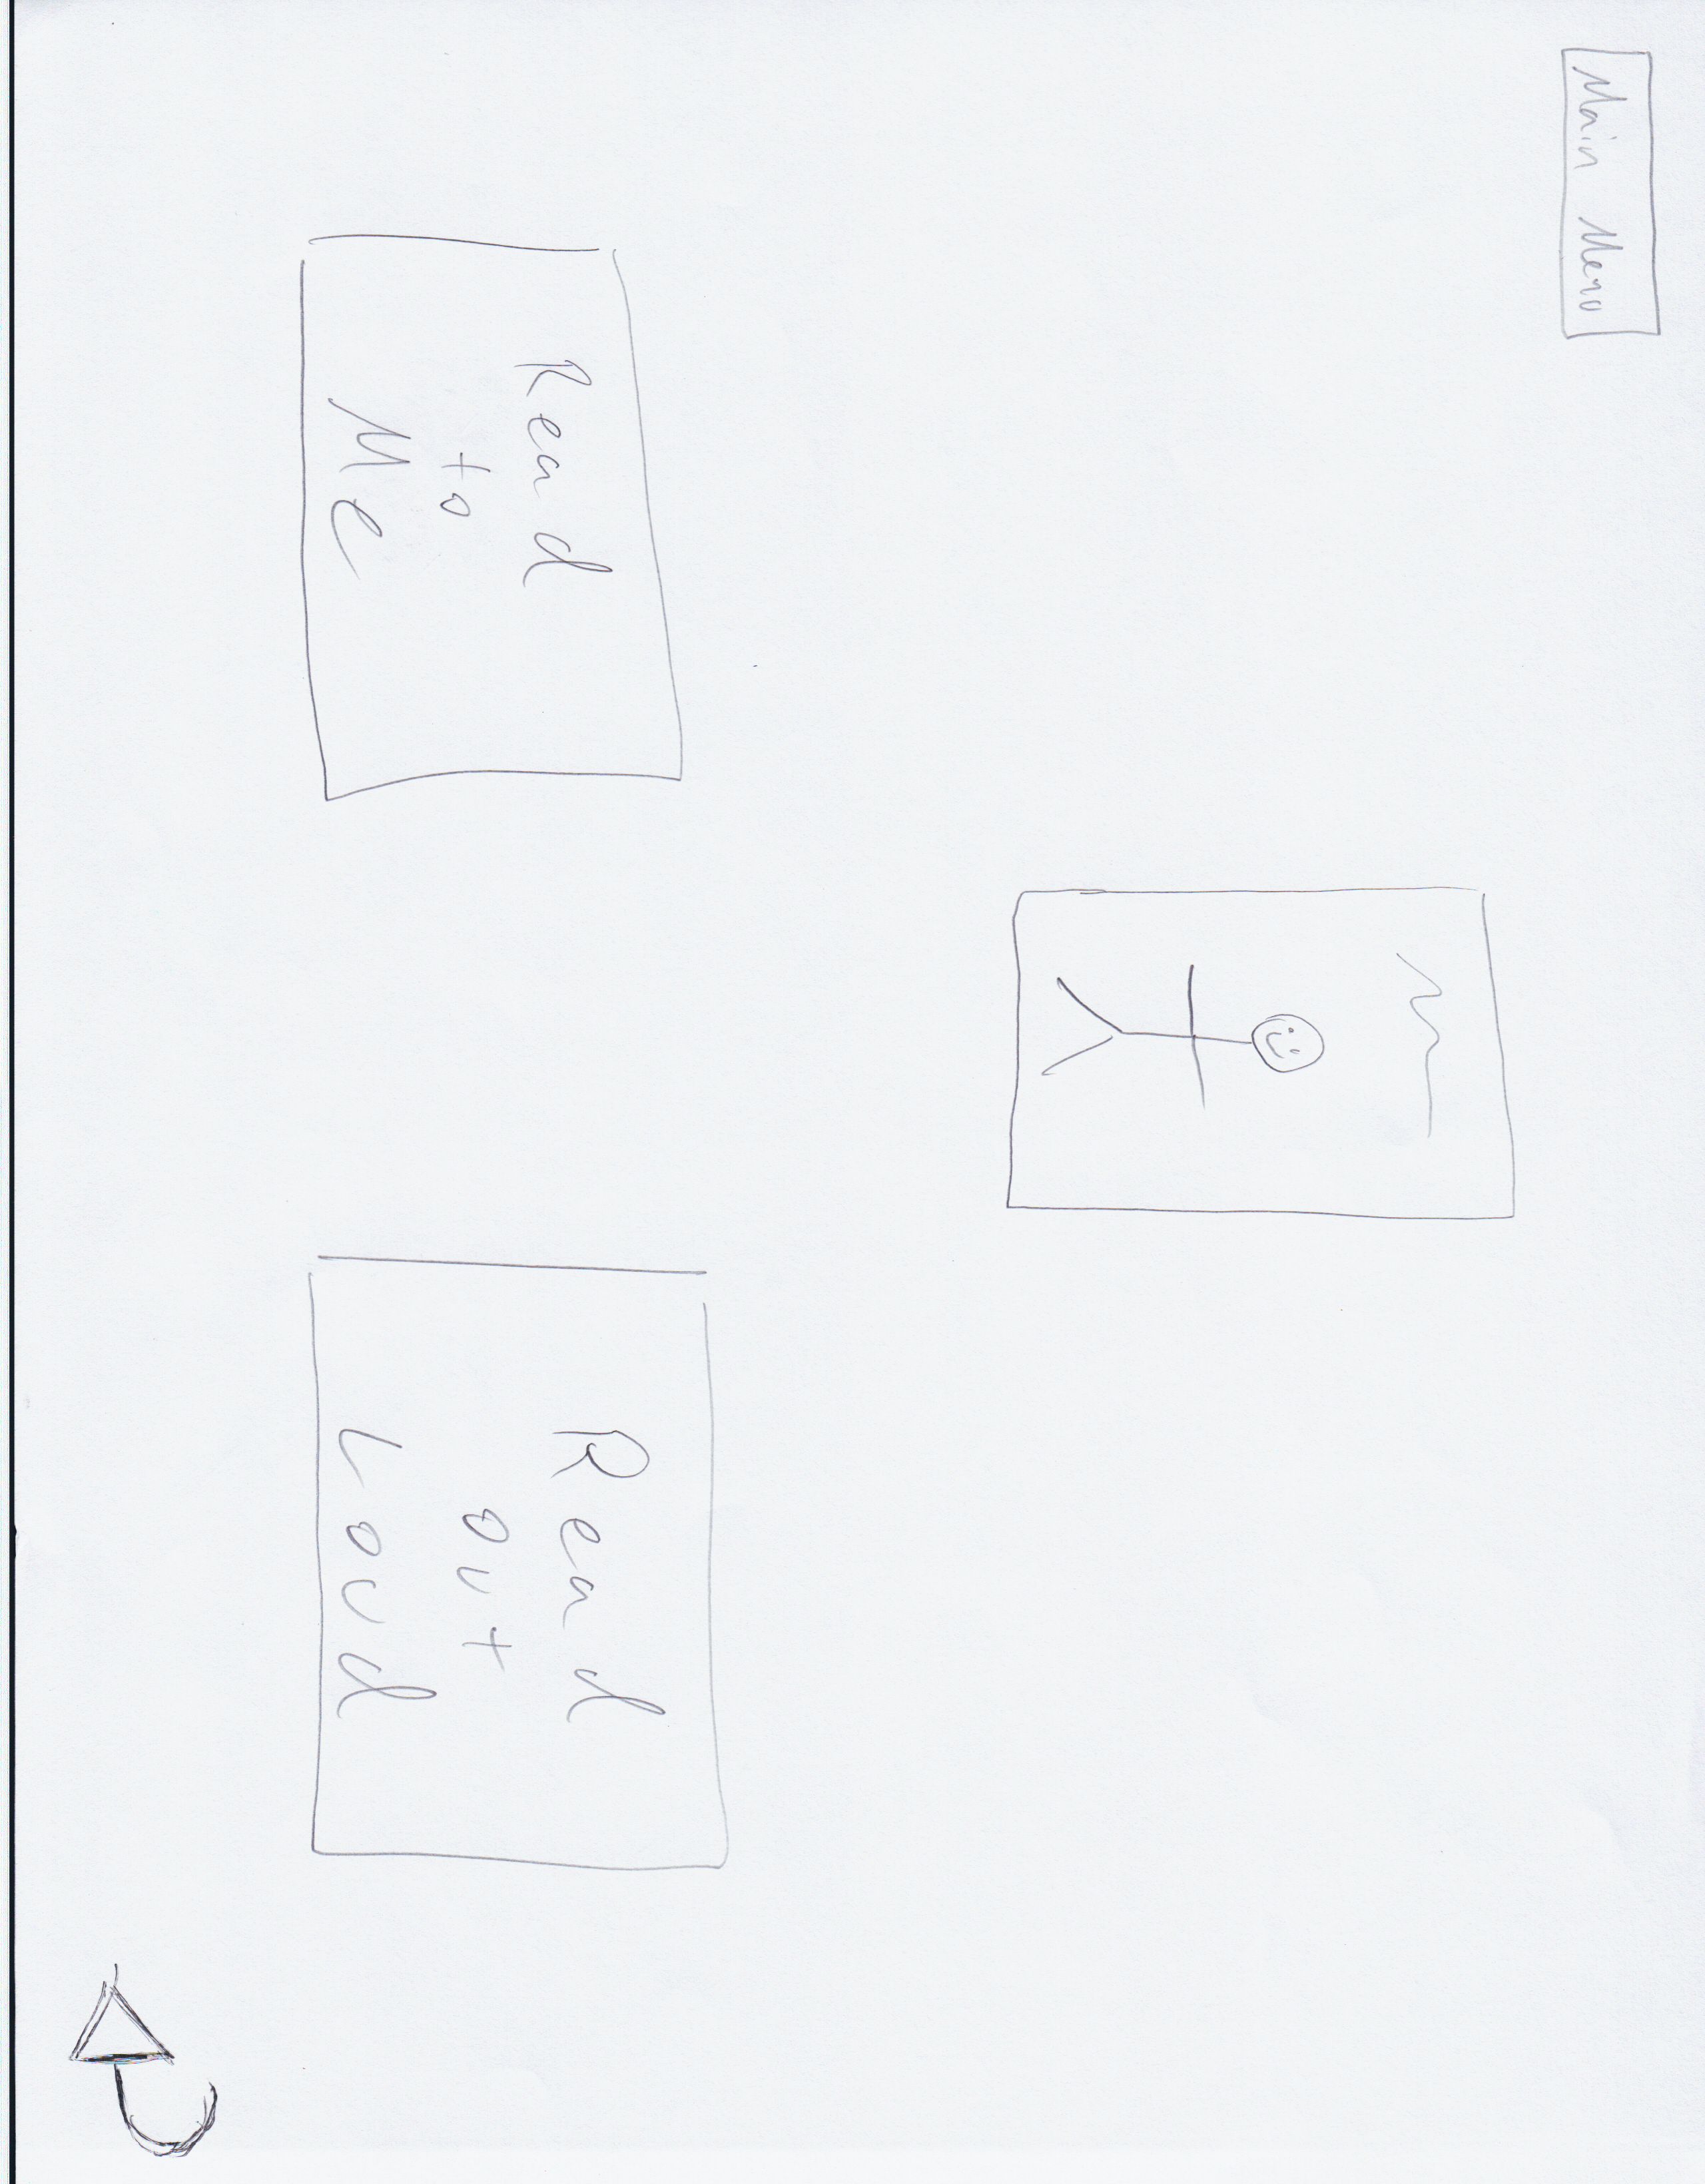 Main Menu
Read
to
Me
Read
out
Loud